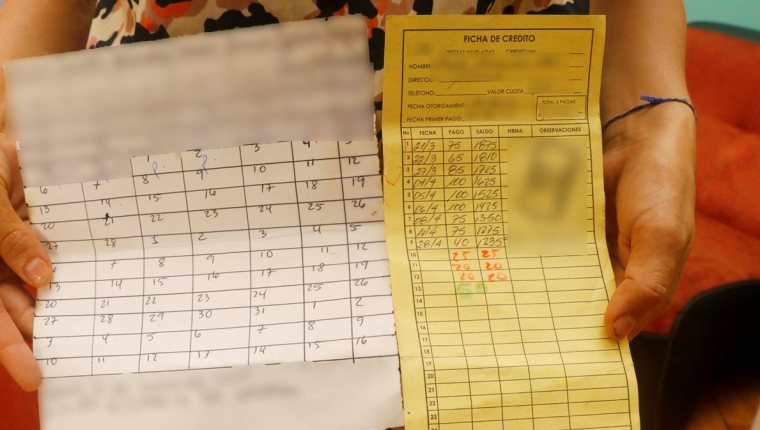 1 2 3 4 5
6 7 8 9 10 11 12
13 14 15 16 17 18 19
20 21 22 23 24 25 26
27 28 1 2 3 4 5
6 7 8 9 10 11 12
13 14 15 16 17 18 19
20 21 22 23 24 25 26
27 28 29 30 31 1 2
3 4 5 6 7 8 9
10 11 12 13 14 15 16
FICHA DE CREDITO
NOMBRE
DIRECC
TELÉFONO: VALOR CUOTA
FECHA OTORGAMIENT TOTAL A PAGAR:
FECHA PRIMER PAGO
No. FECHA PAGO SALDO FIRMA OBSERVACIONES
1 21/3 75 1875
2 65 1810
3 27/3 85 1725
4 04/4 100 1625
5 05/4 100 1525
6 06/4 100 1425
7 08/4 75 1350
8 75 1275
9 28/4 40 1235
10 25 25
11 20 20
12 20 20
13
14
15
16
17
18
19
20
21
22
23